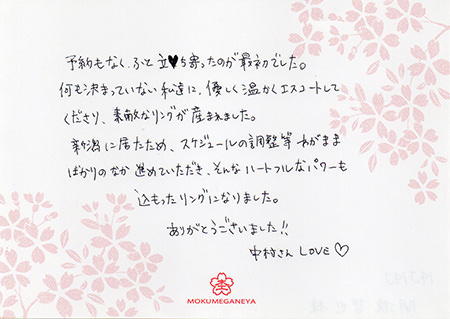 予約もなく、ふと立♥ち寄ったのが最初でした。
何も決まっていない私達に、優しく温かくエスコートして
くださり、素敵なリングが産まれました。
新潟に居たため、スケジュールの調整等わがまま
ばかりのなか進めていただき、そんなハートフルなパワーも
込もったリングになりました。
ありがとうございました!!
中村さん LOVE♡
MOKUMEGANEYA